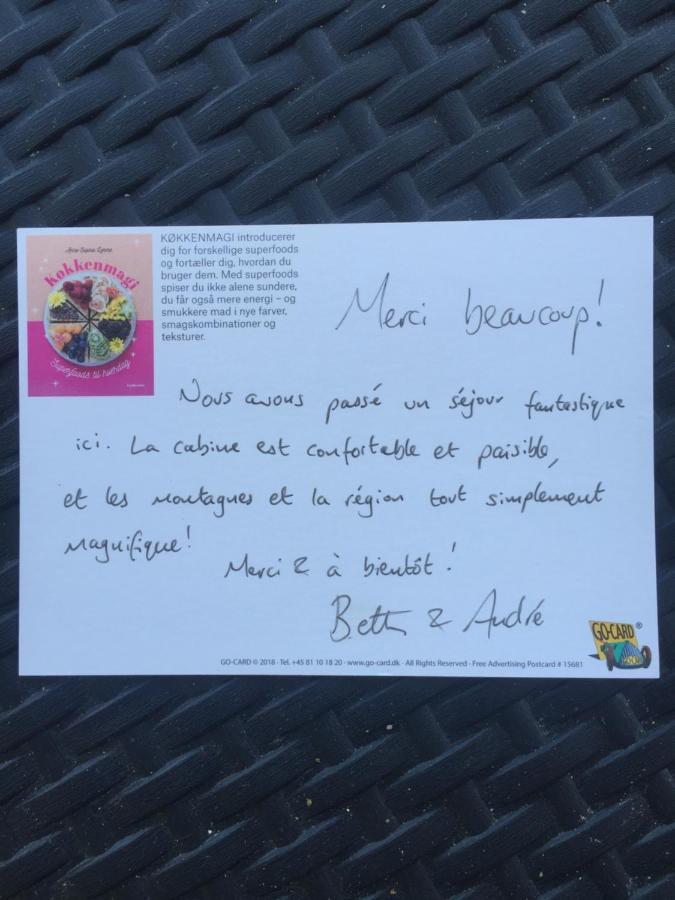 Anne Sophie Lynne
Køkkenmagi
Superfoods til hverdag
KØKKENMAGI introducerer
dig for forskellige superfoods
og fortæller dig, hvordan du
bruger dem. Med superfoods
spiser du ikke alene sundere,
du får også mere energi – og
smukkere mad i nye farver,
smagskombinationer og
teksturer.
Merci beaucoup!
Nous avons passé un séjour fantastique
ici. La cabine est confortable et paisible,
et les montagnes et la région tout simplement
magnifique!
Merci & à bientôt!
Beth & André
GO-CARD ®
GO-CARD
GO-CARD © 2018 · Tel. +45 81 10 18 20 · www.go-card.dk · All Rights Reserved · Free Advertising Postcard # 15681